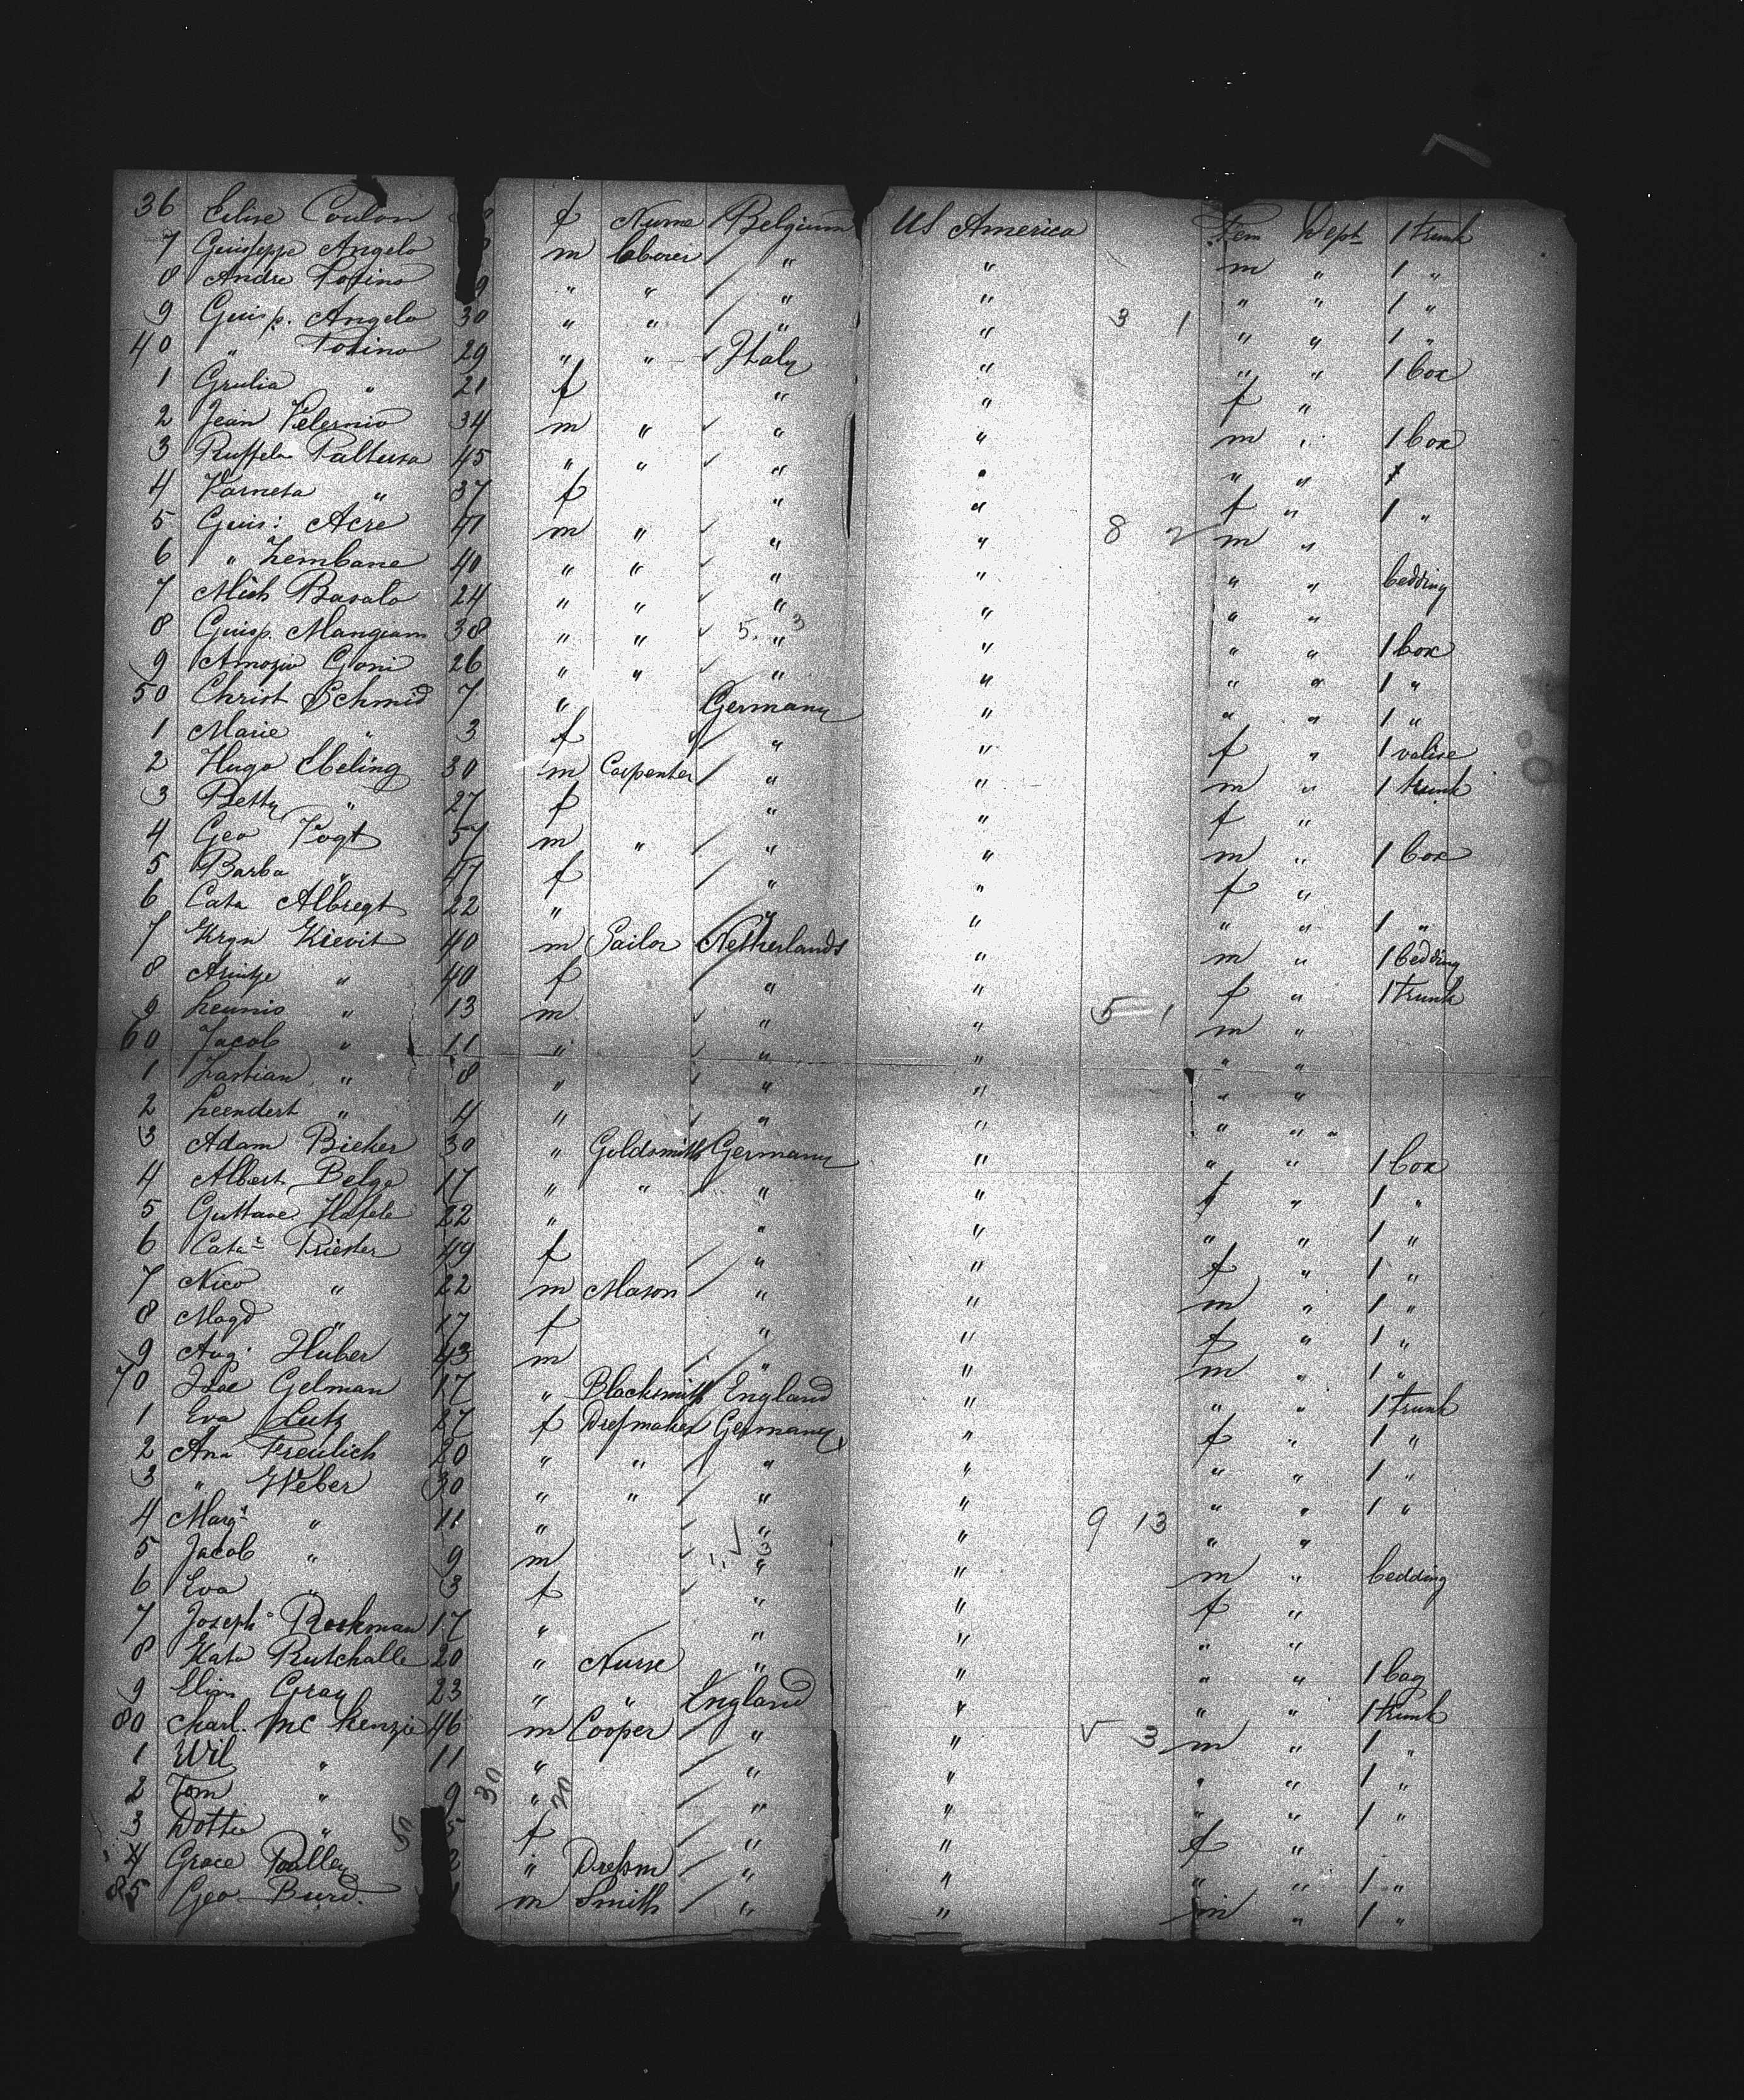 36 Elise Coulon f Nurse Belgium US America Fem Dept 1 trunk
7 Guiseppe Angelo m laborer " " m " 1 "
8 Andre Torino 9 " " " " " " 1 "
9 Guisp. Angelo 30 " " " " 3 1 " " 1 "
40 " Torino 29 " " Italy " " " 1 box
1 Grulia " 21 f " " f "
2 Jean Velernio 34 m " " " m " 1 box
3 Ruffela Paltusa 45 " " " " " " 1
4 Varneta " 37 f " " f " 1 "
5 Guis: Acre 41 m " " " 8 2 m "
6 " Zembane 40 " " " " " " bedding
7 Mich Basalo 24 " " " " " "
8 Guisp. Mangram 38 " " 5. " 3 " " " 1 box
9 Amozio Goni 26 " " " " " " 1 "
50 Christ Schmid 7 " Germany " " " 1 "
1 Marie " 3 f " " f " 1 valise
2 Hugo Ebeling 30 m Carpenter " " m " 1 trunk
3 Betty " 27 f " " f "
4 Geo Vogt 57 m " " " m " 1 box
5 Barba " 47 f " " f "
6 Cata Albregt 22 " " " " " 1 "
7 Kryn Kievit 40 m Sailor Netherlands " m " 1 bedding
8 Arintje " 40 f " " f " 1 trunk
9 Leunis " 13 m " " 5 1 m "
60 Jacob " 11 " " " " "
1 Zastian " 8 " " " " "
2 Leendert " 4 " " " " " "
3 Adam Bieker 30 " Goldsmith Germany " " " 1 box
4 Albert Belge 17 " " " " f " 1 "
5 Guttave Hafele 22 " " " " " 1 "
6 Cata Priester 49 f " " f " 1 "
7 Nico " 22 m Mason " " m " 1 "
8 Magd " 17 f " " f " 1 "
9 Aug. Huber 43 m " " m " 1 "
70 Isae Gelman 17 " Blacksmith England " " " 1 trunk
1 Eva Lutz 27 f Dressmaker Germany " f " 1 "
2 Ana Freulich 20 " " " " " " 1 "
3 " Weber 30 " " " " " " 1 "
4 Marg " 11 " " " 9 13 " "
5 Jacob " 9 m 11 3 " " m " bedding
6 Eva " 3 f " " f "
7 Joseph Rockman 17 " " " " "
8 Kata Rutchalle 20 " Nurse " " " " 1 bag
9 Elisa Gray 23 " " England " " " 1 trunk
80 Charl. Mc Kenzie 46 m Cooper " " 5 3 m " 1 "
1 Wil " 11 " " " " " 1 "
2 Tom " 9 30 " 20 " " " " 1 "
3 Dotta " 50 5 f " " f "
4 Grace Palley 2 " Dressm " " " " 1 "
85 Geo Burd. 1 m Smith " " m " 1 "